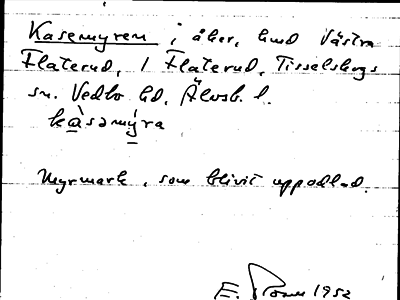 Kasemyren, åker, hmd Västra
Flaterud, / Flaterud, Tisselskogs
sn. Vedbo hd, Älvsb. l.
kàsamýra
Myrmark, som blivit uppodlad.
E. 1952